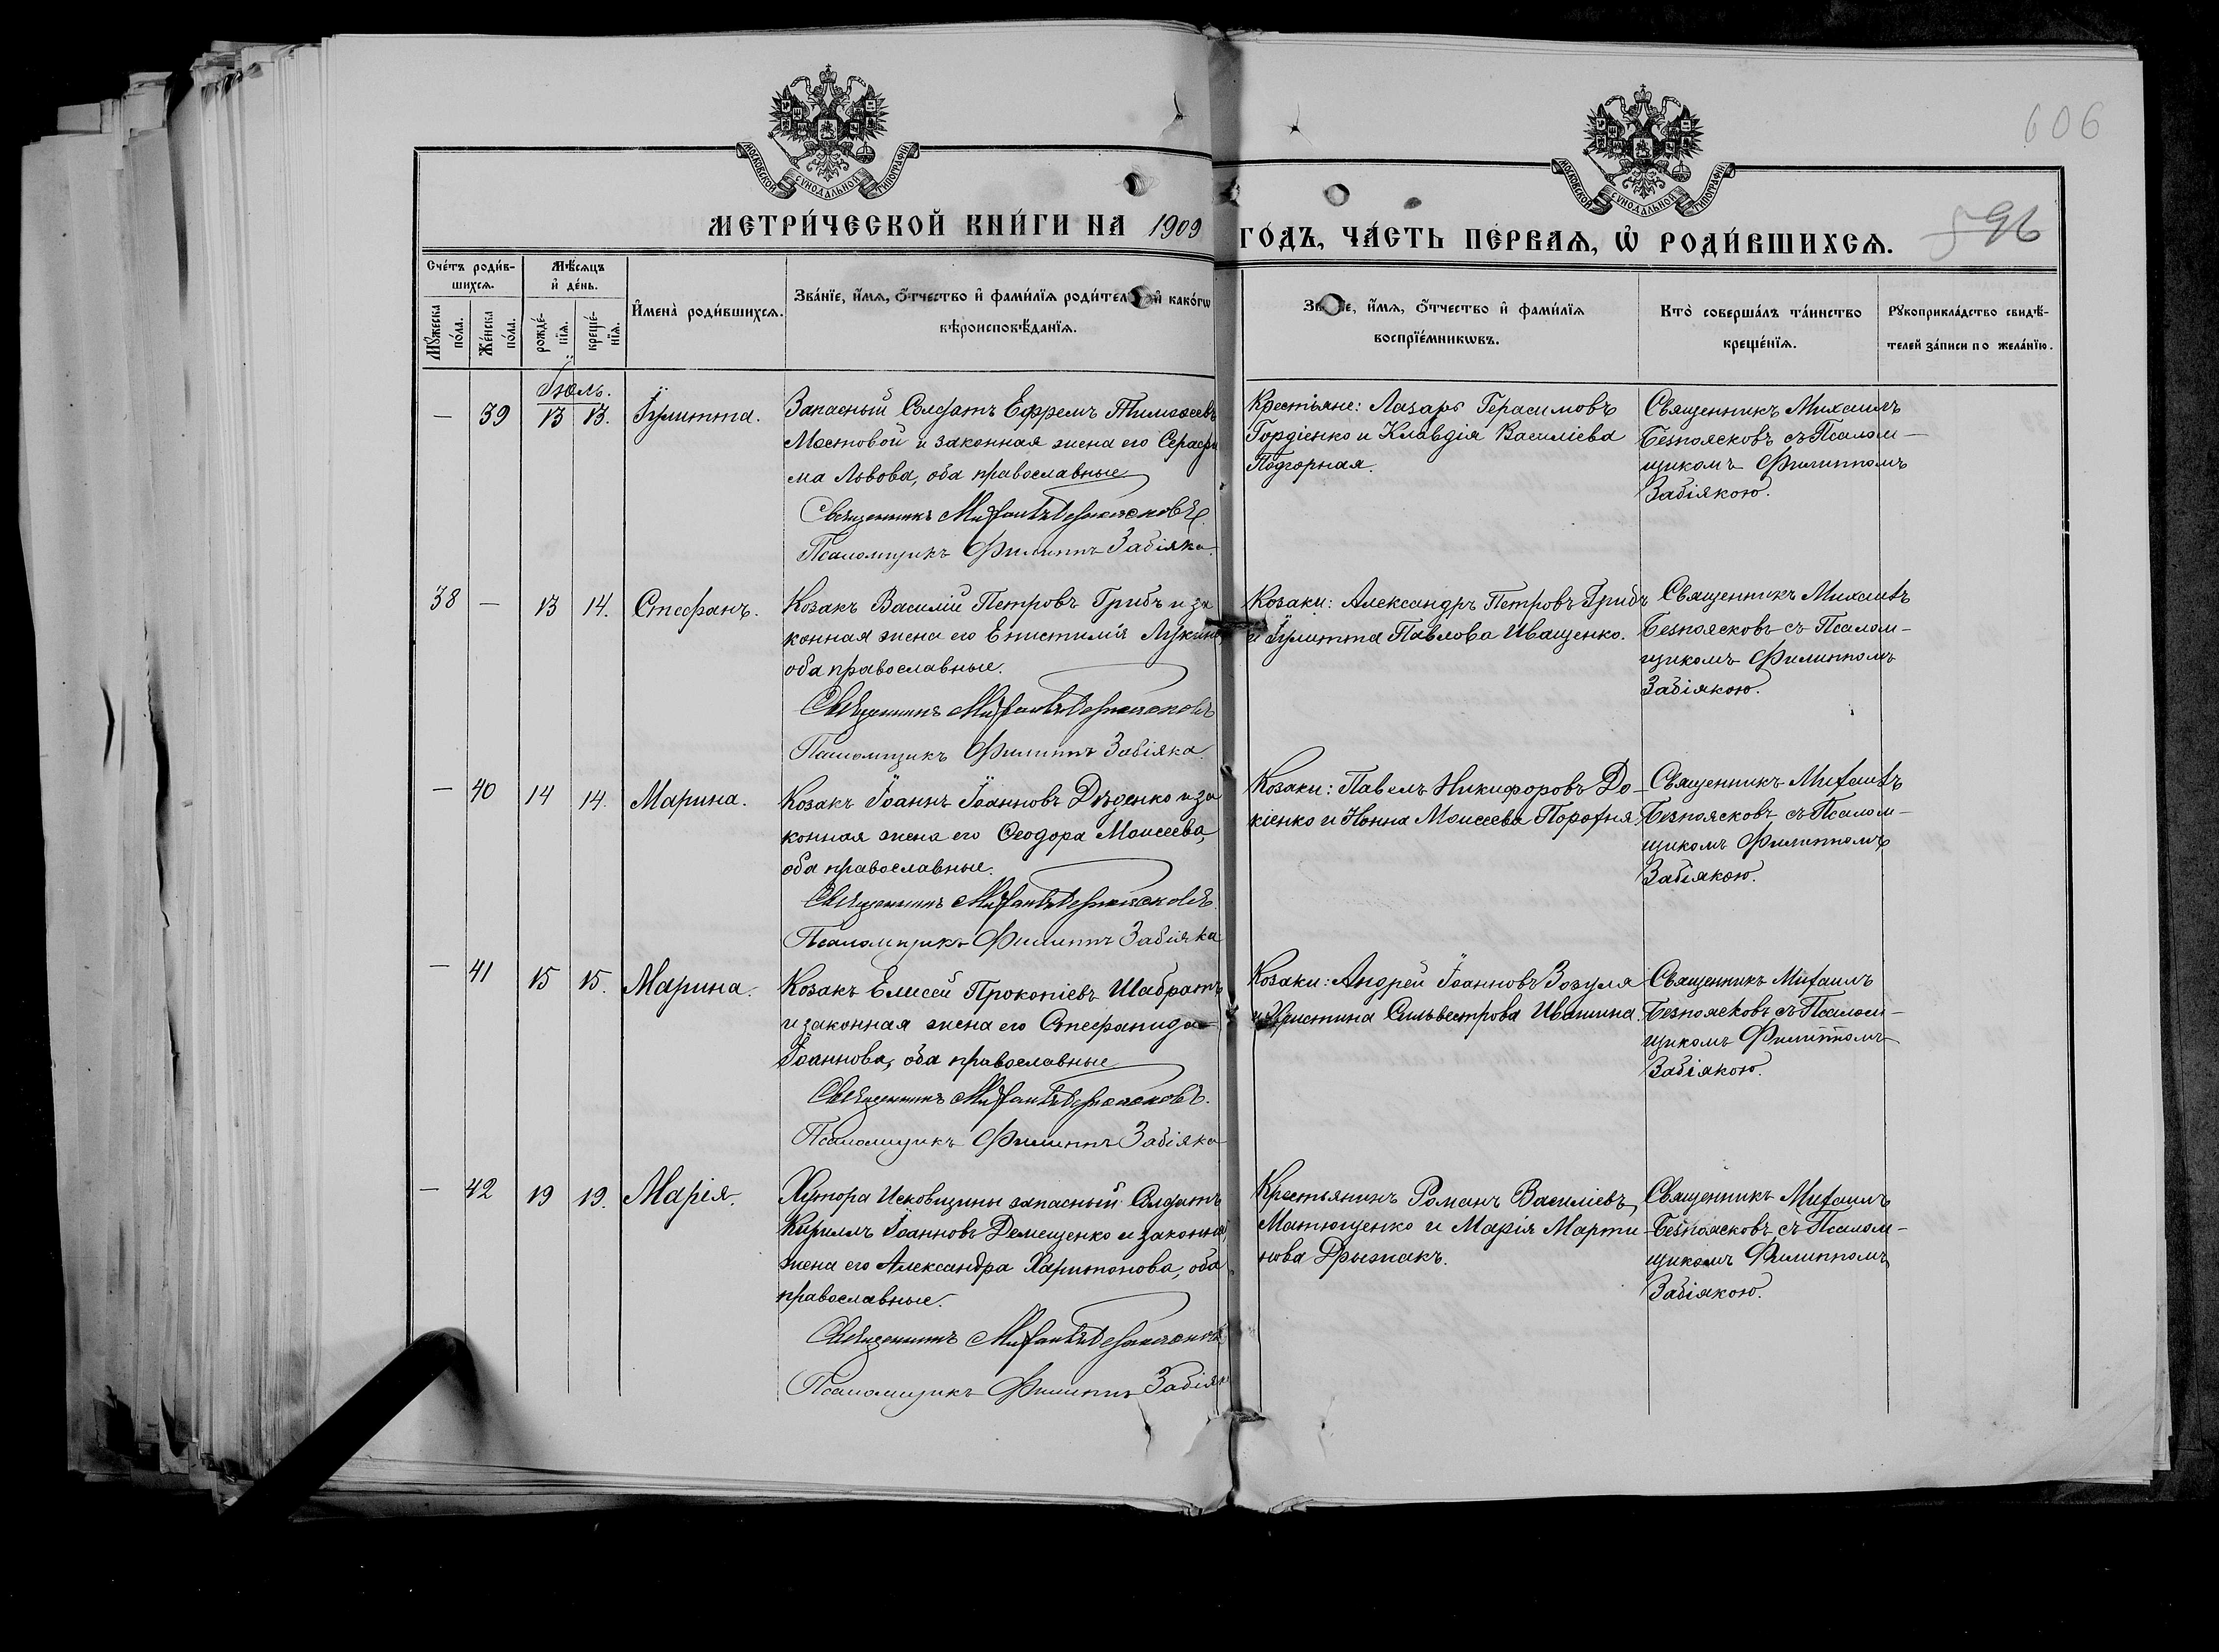 606
МОСКОВСКОЙ СѴНОДАЛЬНОЙ ТИПОГРАФІИ
МОСКОВСКОЙ СѴНОДАЛЬНОЙ ТИПОГРАФІИ
МЕТРИ́ЧЕСКОЙ КНИ́ГИ НА 1909
ГО́ДЪ, ЧА́СТЬ ПЕ́РВАѦ, Ѡ҆ РОДИ́ВШИХСѦ.
596
Сче́тъ роди́в-
шихсѧ.
Мꙋжеска по́ла.
Же́нска по́ла.
Мѣ́сѧцъ
и҆ де́нь.
рожде́-
нїѧ.
креще́-
нїѧ.
И҆мена̀ роди́вшихсѧ.
Зва́нїе, и҆́мѧ, ѻ҆́тчество и҆ фами́лїѧ роди́тел и҆ како́гѡ
вѣроисповѣ́данїѧ.
Зв е, и҆́мѧ, ѻ҆́тчество и҆ фами́лїѧ
воспрїе́мникѡвъ.
Кто̀ соверша́лъ та́инство
креще́нїѧ.
Рꙋкоприкла́дство свидѣ́-
телей за́писи по жела́нїю.
Іюль.
— 39 13 13. Іулитта.
Запасный Солдатъ Ефремъ Тимоѳеевъ
Мостовой и законная жена его Серафи
ма Львова, оба православные
Священникъ Михаилъ Безпоясковъ.
Псаломщикъ Филиппъ Забіяка.
Крестьяне: Лазарь Герасимовъ
Гордіенко и Клавдія Василіева
Подгорная.
Священникъ Михаилъ
Безпоясковъ съ Псалом—
щикомъ Филиппомъ
Забіякою.
38 — 13 14. Стефанъ.
Козакъ Василій Петровъ Грибъ и за
конная жена его Епистимія Лукина,
оба православные.
Священникъ Михаилъ Безпоясковъ
Псаломщикъ Филиппъ Забіяка
Козаки: Александръ Петровъ Грибъ
и Іулитта Павлова Иващенко.
Священникъ Михаилъ
Безпоясковъ съ Псалом—
щикомъ Филиппомъ
Забіякою.
— 40 14 14. Марина.
Козакъ Іоаннъ Іоанновъ Дѣденко и за
конная жена его Ѳеодора Моисеева,
оба православные.
Священникъ Михаилъ Безпоясковъ.
Псаломщикъ Филиппъ Забіяка
Козаки: Павелъ Никифоровъ До—
кіенко и Нонна Моисеева Порохня
Священникъ Михаилъ
Безпоясковъ съ Псалом—
щикомъ Филиппомъ
Забіякою.
— 41 15 15. Марина.
Козакъ Елисей Прокопіевъ Шабратъ
и законная жена его Стефанида
Іоаннова, оба православные
Священникъ Михаилъ Безпоясковъ.
Псаломщикъ Филиппъ Забіяка
Козаки: Андрей Іоанновъ Зозуля
и Христина Сильвестрова Ивашина.
Священникъ Михаилъ
Безпоясковъ съ Псалом—
щикомъ Филиппомъ
Забіякою.
— 42 19 19. Марія.
Хутора Исковщины запасный Солдатъ
Кириллъ Іоанновъ Демещенко и законная
жена его Александра Харитонова, оба
православные.
Священникъ Михаилъ Безпоясковъ
Псаломщикъ Филиппъ Забіяк
Крестьянинъ Романъ Василіевъ
Матющенко и Марія Марти
нова Дрыжакъ.
Священникъ Михаилъ
Безпоясковъ съ Псалом—
щикомъ Филиппомъ
Забіякою.